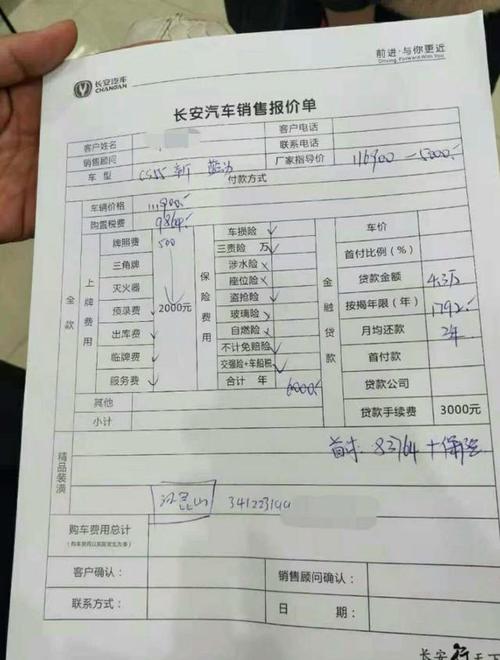 长安汽车
CHANGAN
前进·与你更近
Driving, Forward With You
长安汽车销售报价单
客户姓名
客户电话
销售顾问
联系电话
车 型 CS55 新 蓝动
厂家指导价 116900 -5000.
付款方式
全款
车辆价格 111900.
购置税费 9864.
上牌费用
牌照费 500
三角牌
灭火器
预录费 2000元
出库费
临牌费
服务费
保险费用
车损险
三责险 万
涉水险
座位险
盗抢险
玻璃险
自燃险
不计免赔险
交强险+车船税
合计 年 6000.
其他
小计
金融贷款
车价
首付比例(%)
贷款金额 4.3万
按揭年限(年) 1792.
月均还款 2年
首付款
贷款公司
贷款手续费 3000元
精品装潢
首付: 83764 + 保险
341223199
购车费用总计
客户确认:
销售顾问确认:
联系方式:
日 期:
长安行天下